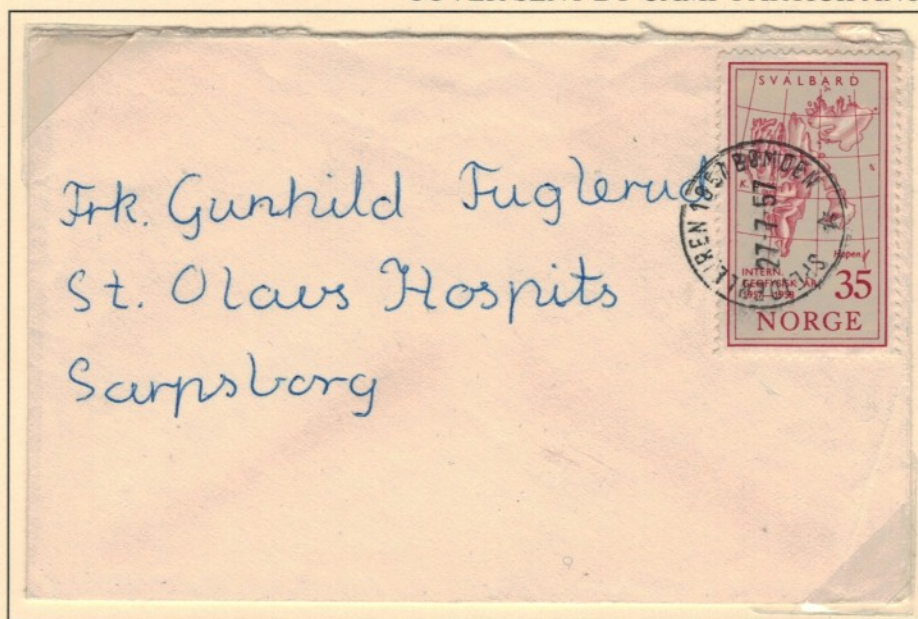 Frk. Gunhild Fuglerud
St. Olavs Hospits
Sarpsborg
SVALBARD
Hopen
INTERN.
GEOFYSISK ÅR
1957-1958
35
NORGE
SPEIDERLEIREN 1957 BØMOEN
27-7 57